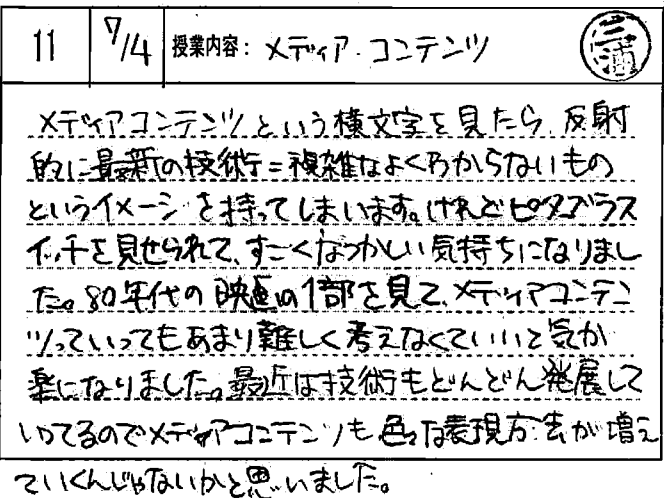 11 7/4 授業内容: メディア・コンテンツ 三浦
メディアコンテンツという横文字を見たら、反射
的に最新の技術=複雑なよくわからないもの
というイメージを持ってしまいます。けれどピタゴラス
イッチを見せられて、すごくなつかしい気持ちになりまし
た。80年代の映画の1部を見て、メディアコンテン
ツっていってもあまり難しく考えなくていいと気が
楽になりました。最近は技術もどんどん発展して
いってるのでメディアコンテンツも色々な表現方法が増え
ていくんじゃないかと思いました。